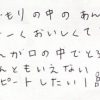 ともりの中のあん
ーくおいしくて
んがロの中でと
んともいえない
ピートしたい！